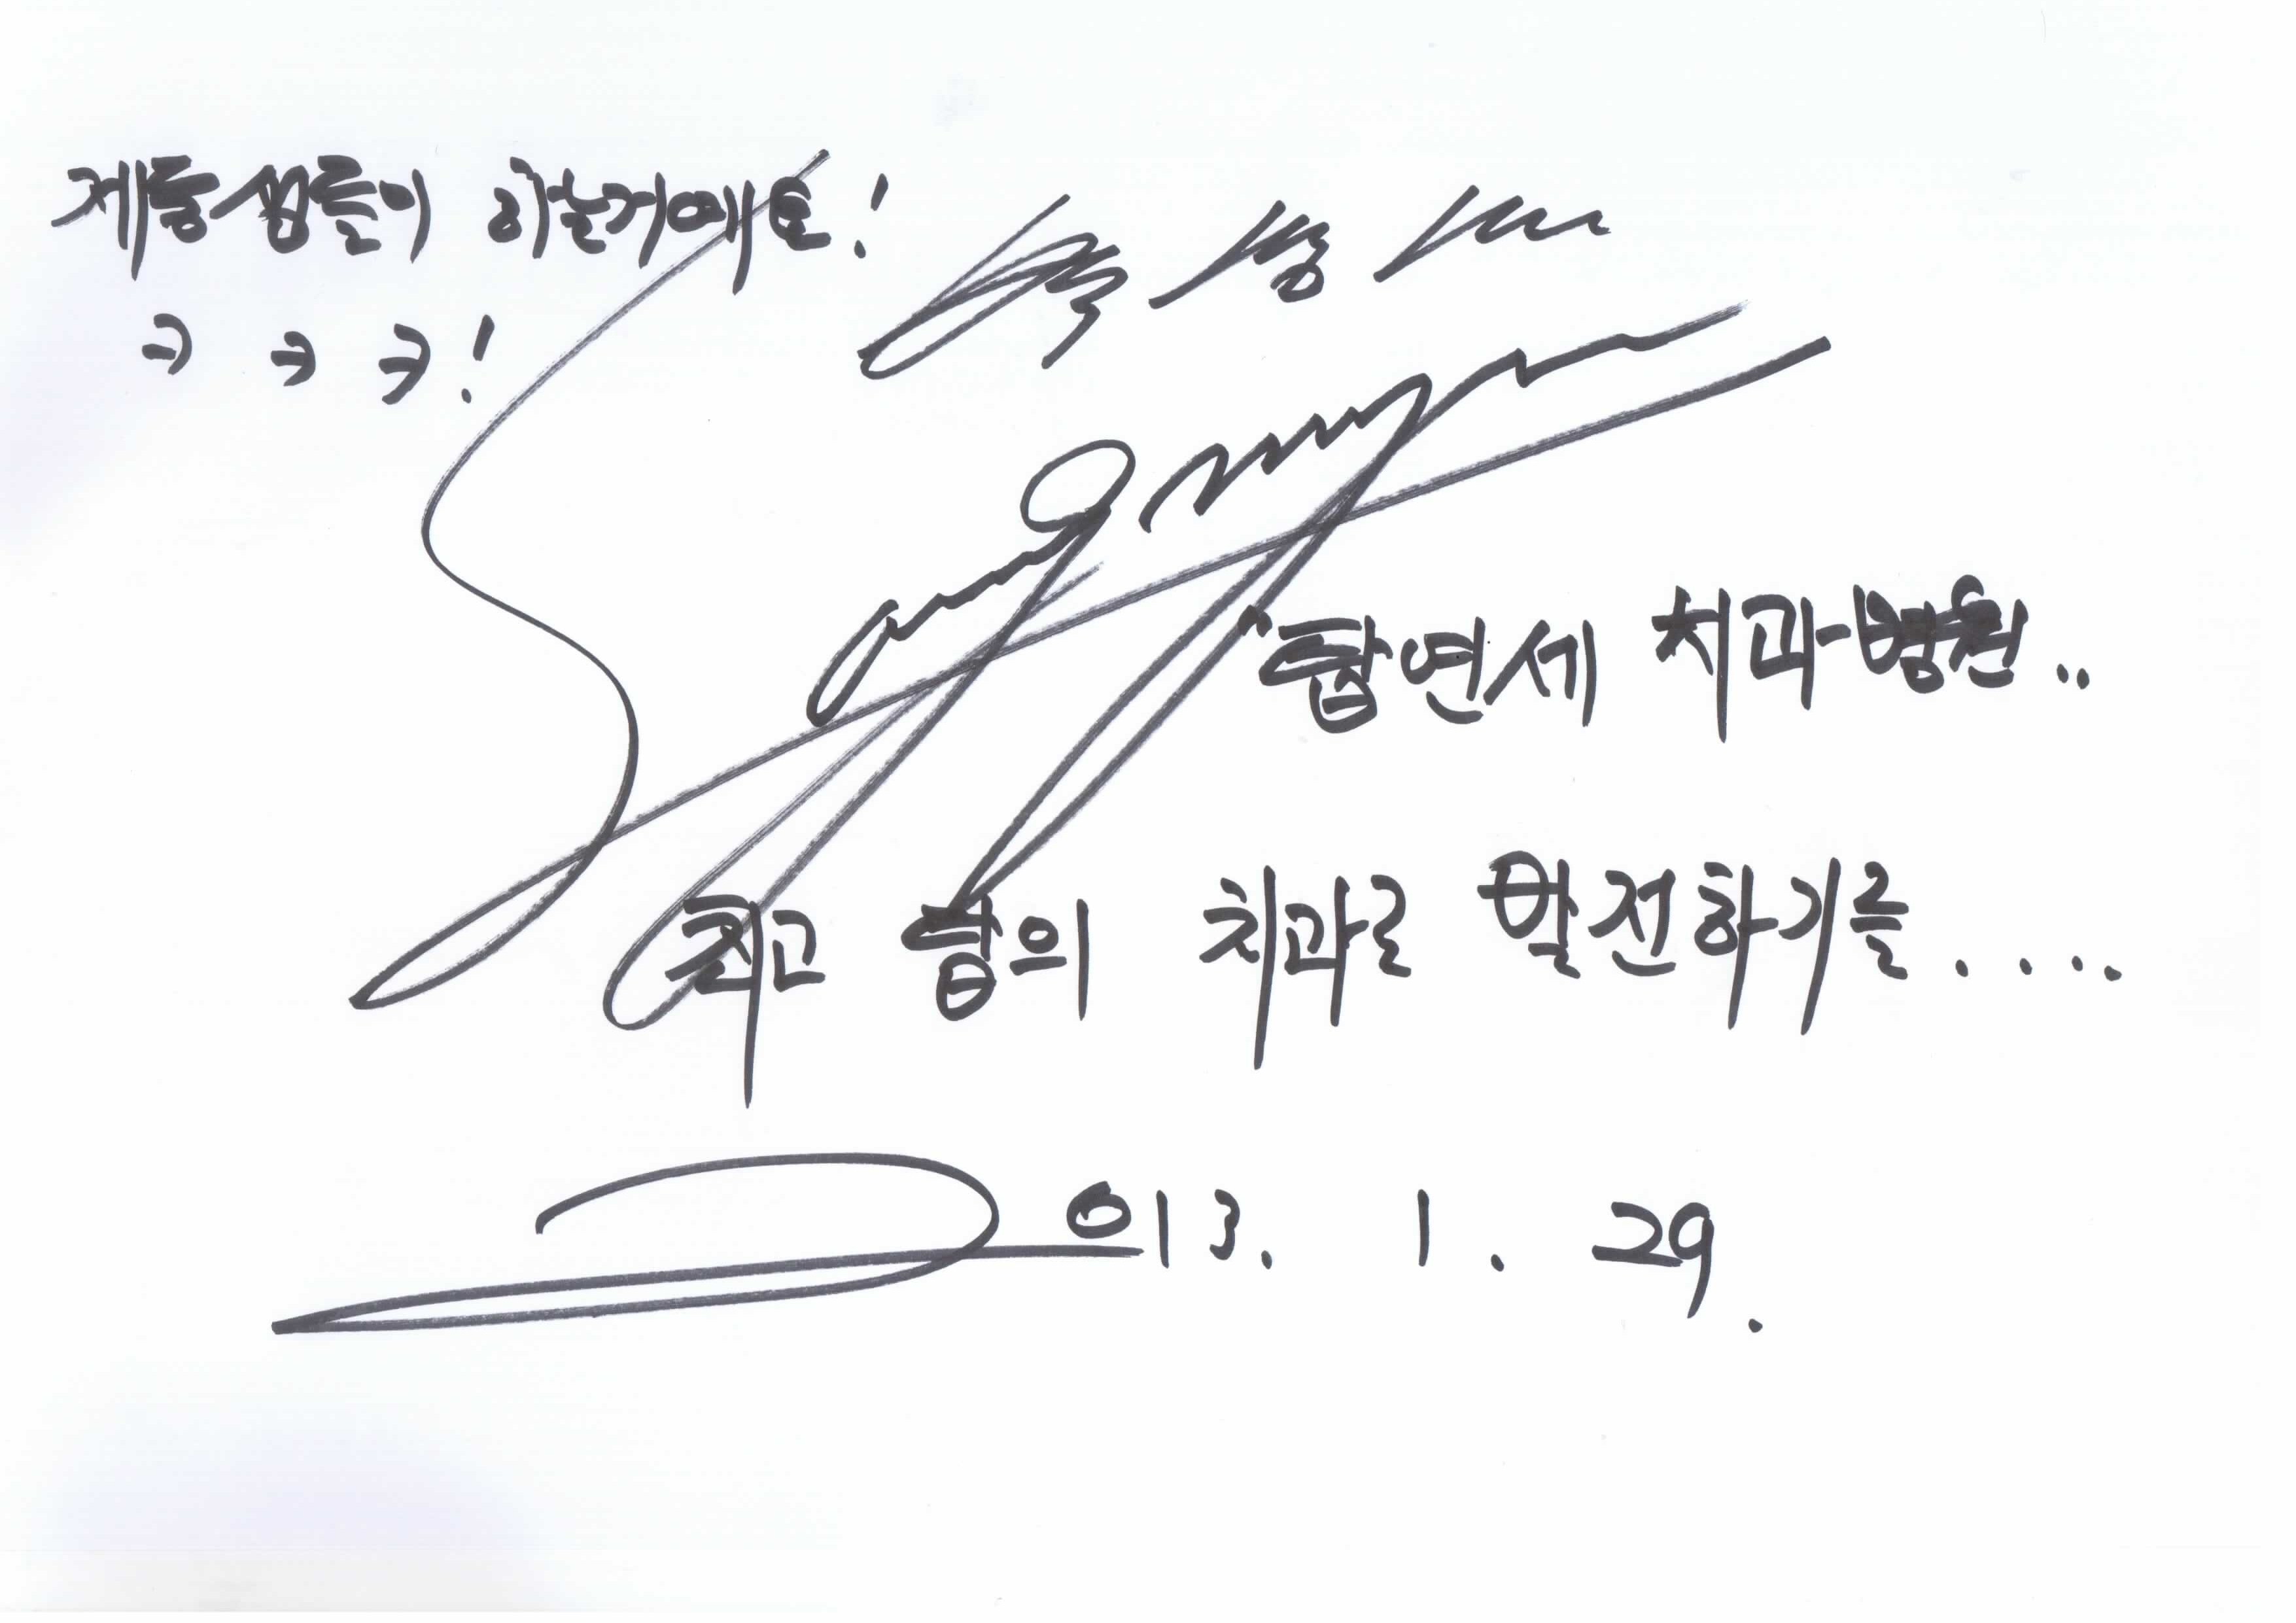 제동생들이 하는거예요!
ㅋ ㅋ ㅋ!
"탑연세 치과병원..
최고 탑의 치과로 발전하기를....
2013. 1. 29.